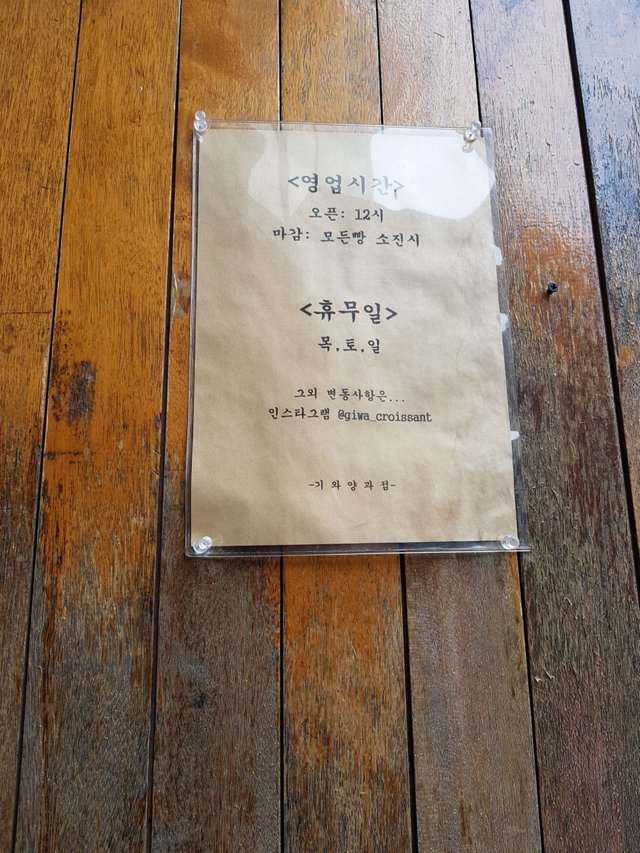 <영업시간>
오픈: 12시
마감: 모든빵 소진시
<휴무일>
목,토,일
그외 변동사항은...
인스타그램 @giwa_croissant
-기와양과점-